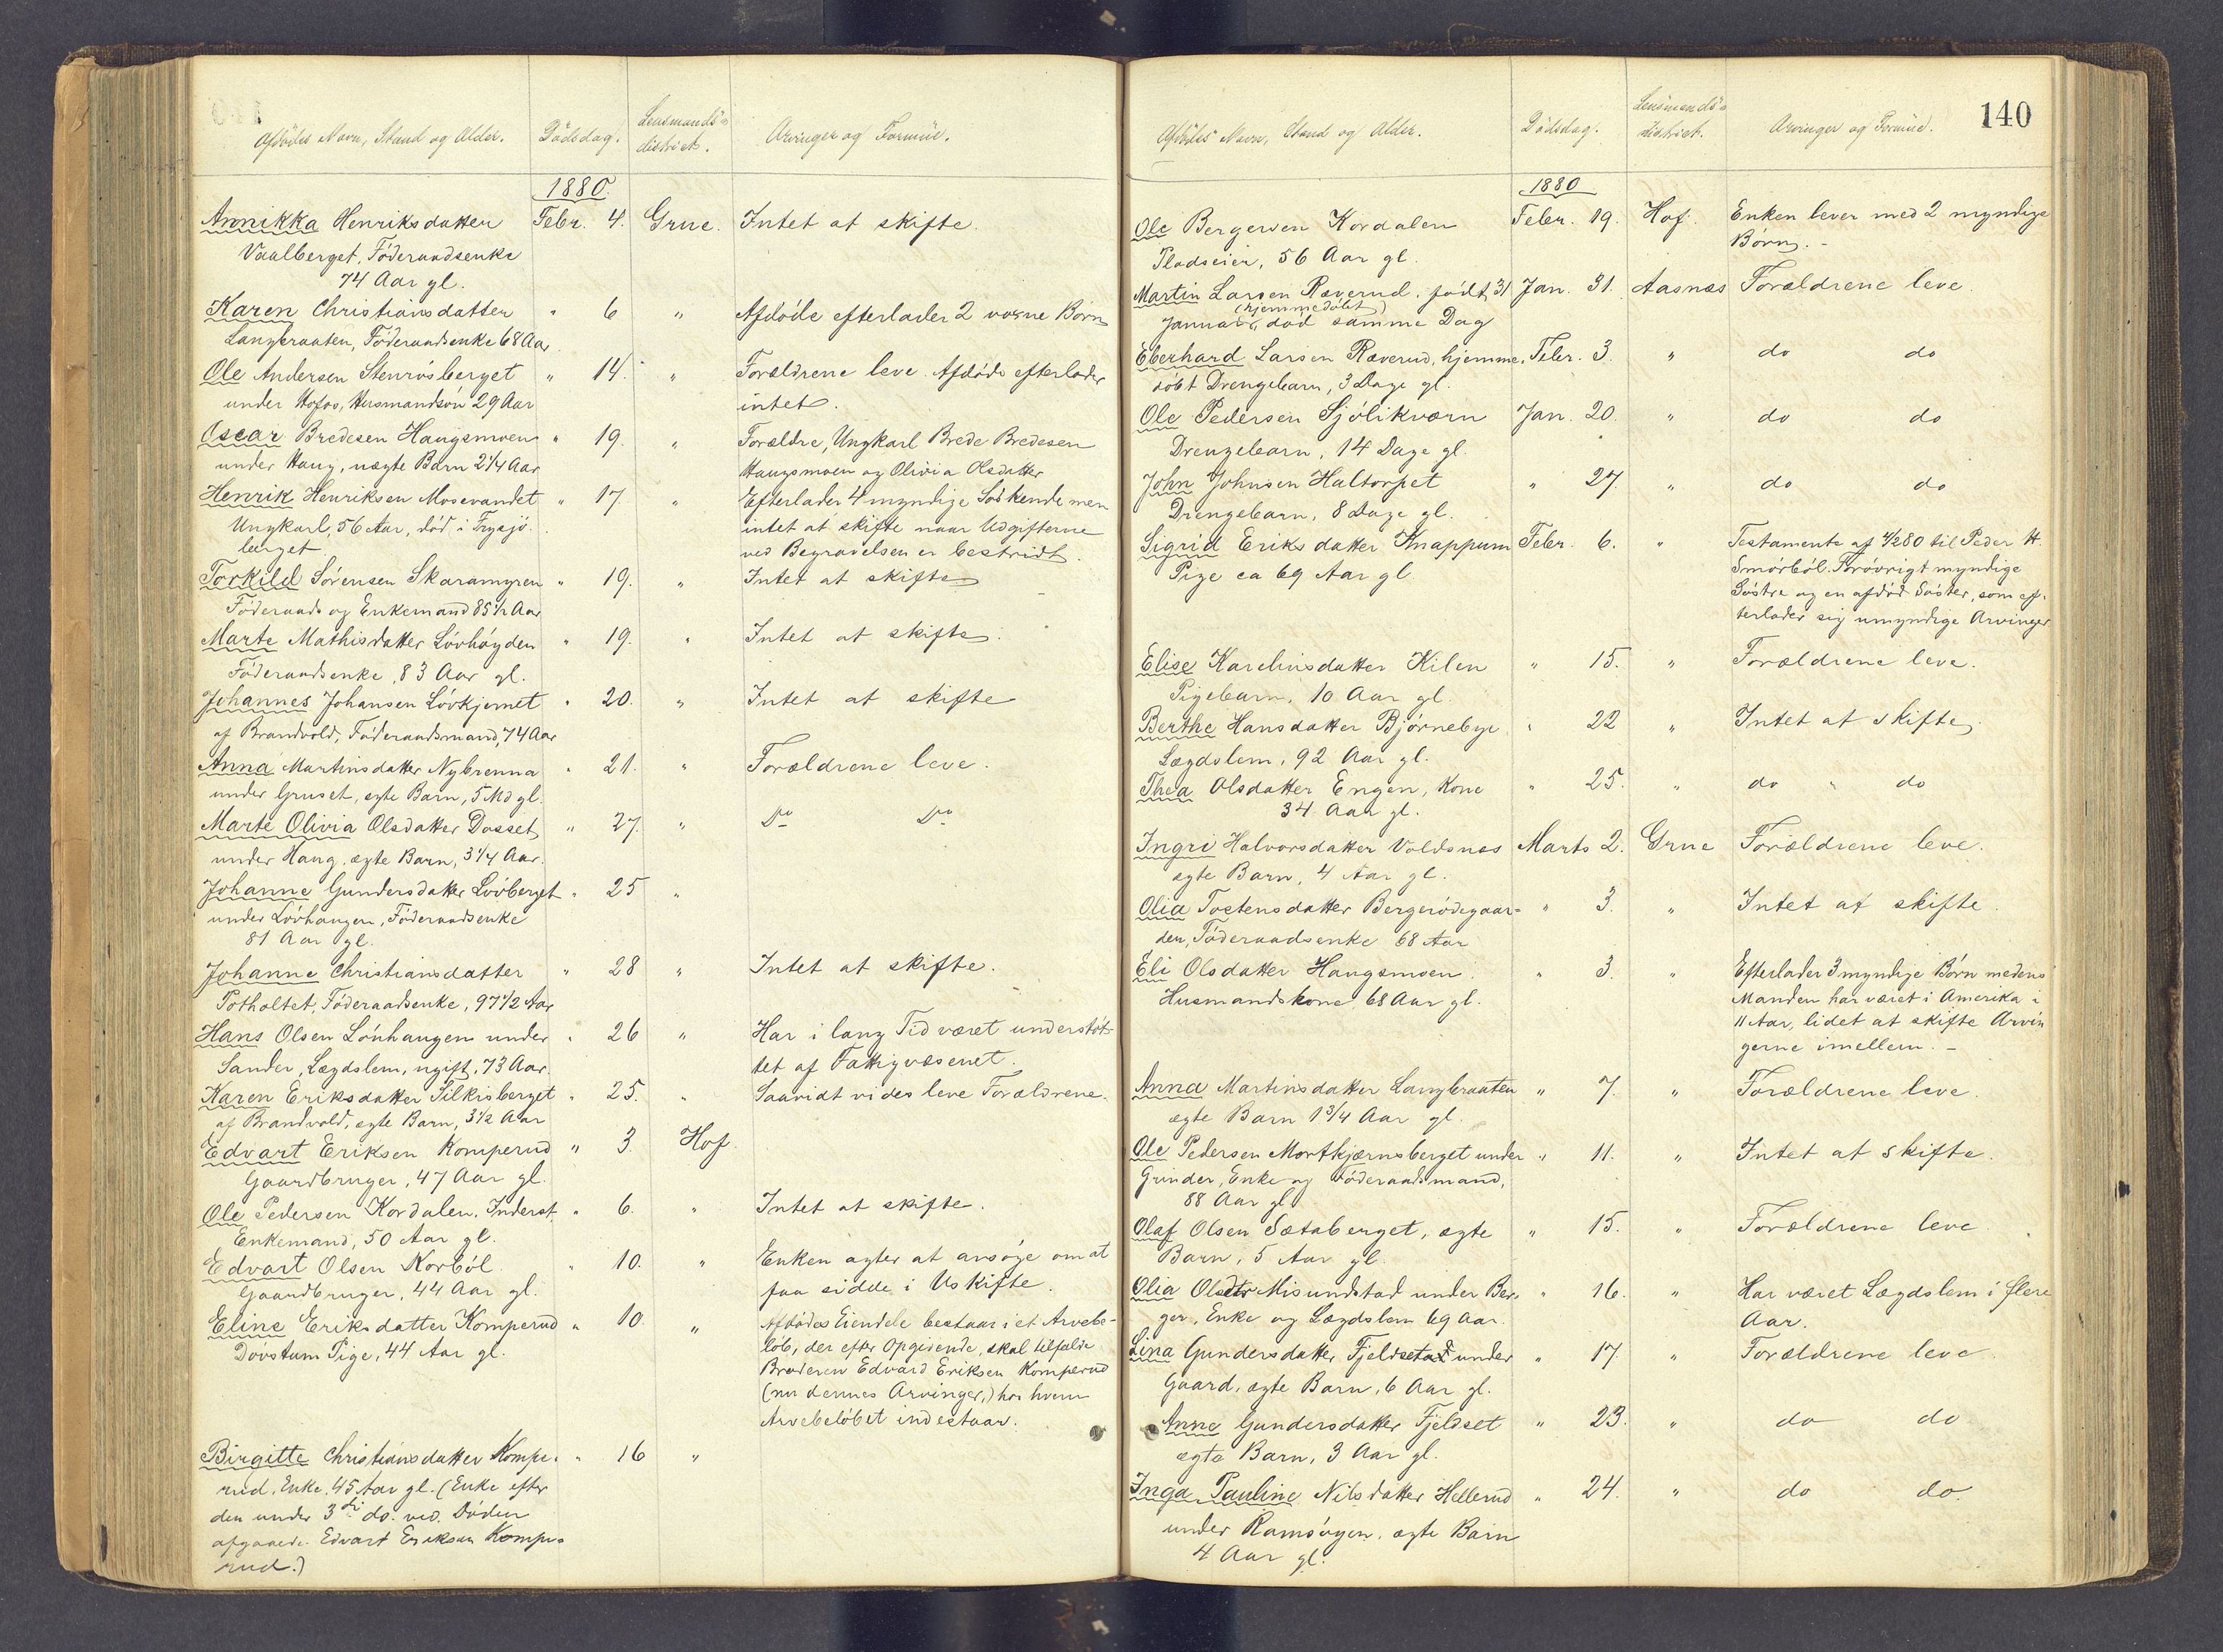 Afdødes Navn, Stand og Alder. Dødsdag. Lensmands-
district. Arvinger og Formue.
1880.
Annikka Henriksdatter Febr. 4. Grue. Intet at skifte.
Vaalberget, Föderaadsenke
74 Aar gl.
Karen Christiansdatter " 6 " Afdöde efterlader 2 voxne Börn
Langbraaten, Föderaadsenke 68 Aar
Ole Andersen Stenrösberget " 14. " Forældrene leve. Afdöde efterlader
under Hofos, Husmandsön 29 Aar intet.
Oscar Bredesen Haugsmoen " 19. " Forældre, Ungkarl Brede Bredesen
under Haug, uægte Barn 2 1/4 Aar Haugsmoen og Olivia Olsdatter
Henrik Henriksen Mosevandet " 17. " Efterlader 4 myndige Södskende men
Ungkarl, 56 Aar, död i Frysjö- intet at skifte naar Udgifterne
berget ved Begravelsen er bestridt.
Torkild Sörensen Skaramyren " 19. " Intet at skifte
Föderaads og Enkemand 85 1/2 Aar
Marte Mathisdatter Lövhöyden " 19. " Intet at skifte.
Föderaadsenke, 83 Aar gl.
Johannes Johansen Lövkjernet " 20. " Intet at skifte
af Brandvold, Föderaadsmand, 74 Aar
Anna Martinsdatter Nybrenna " 21. " Forældrene leve.
under Gruset, ægte Barn, 5 Md gl.
Marte Olivia Olsdatter Dosset " 27. " Do Do
under Haug, ægte Barn, 3 1/4 Aar.
Johanne Gundersdatter Lövberget " 25 "
under Lövhaugen, Föderaadsenke
81 Aar gl.
Johanne Christiansdatter " 28 " Intet at skifte.
Potholtet, Föderaadsenke, 97 1/2 Aar
Hans Olsen Lönhaugen under " 26 " Har i lang Tid været understöt-
Sander, Lægdslem, ugift, 73 Aar. tet af Fattigvæsenet.
Karen Eriksdatter Silkisberget " 25. " Saavidt vides leve Forældrene.
af Brandvold, ægte Barn, 3 1/2 Aar
Edvart Eriksen Komperud " 3. Hof.
Gaardbruger, 47 Aar gl.
Ole Pedersen Kordalen, Inderst, " 6. " Intet at skifte.
Enkemand, 50 Aar gl.
Edvart Olsen Norböl " 10. " Enken agter at ansöge om at
Gaardbruger, 44 Aar gl. faa sidde i Uskifte.
Eline Eriksdatter Komperud " 10. " Afdödes Eiendele bestaar i et Arvebe-
Dövstum Pige, 44 Aar gl. löb, der efter Opgivende, skal tilfalde
Broderen Edvard Eriksen Komperud
(nu dennes Arvinger,) hos hvem
Arvebelöbet indestaar.
Birgitte Christiansdatter Kompe- " 16 "
rud, Enke, 45 Aar gl. (Enke efter
den under 3die ds. ved Döden
afgaaede Edvart Eriksen Kompe-
rud.)
140
Afdødes Navn, Stand og Alder. Dødsdag. Lensmands-
district. Arvinger og Formue.
1880
Ole Bergersen Kordalen Febr. 19. Hof. Enken lever med 2 myndige
Pladseier, 56 Aar gl. Börn.
Martin Larsen Ræverud, födt 31 Jan. 31. Aasnæs Forældrene leve.
(hjemmedöbt)
Januar, död samme Dag
Eberhard Larsen Ræverud, hjemme- Febr. 3. " do do
döbt Drengebarn, 3 Dage gl.
Ole Pedersen Sjölikværn Jan. 20. " do do
Drengebarn, 14 Dage gl.
John Johnsen Haltorpet " 27. " do do
Drengebarn, 8 Dage gl.
Sigrid Eriksdatter Knappum Febr. 6. " Testamente af 4/2 80 til Peder H.
Pige ca 69 Aar gl Smörböl. Forövrigt myndige
Söstre og en afdöd Söster, som ef-
terlader sig umyndige Arvinger
Elise Karelinsdatter Kilen " 15. " Forældrene leve.
Pigebarn, 10 Aar gl.
Berthe Hansdatter Bjørnebye " 22 " Intet at skifte.
Lægdslem, 92 Aar gl.
Thea Olsdatter Engen, Kone " 25. " do " do
34 Aar gl.
Ingri Halvorsdatter Voldsnæs Marts 2. Grue Forældrene leve.
ægte Barn, 4 Aar gl.
Olia Tostensdatter Bergerödegaar- " 3. " Intet at skifte.
den, Föderaadsenke 68 Aar
Eli Olsdatter Haugsmoen. " 3. " Efterlader 3 myndige Börn medens
Husmandskone 68 Aar gl. Manden har været i Amerika i
11 Aar, lidet at skifte Arvin
gerne imellem.
Anna Martinsdatter Langbraaten " 7. " Forældrene leve.
ægte Barn 1 3/4 Aar gl.
Ole Pedersen Mortkjærnsberget under " 11. " Intet at skifte.
Grinder, Enke og Föderaadsmand,
88 Aar gl.
Olaf Olsen Sætaberget, ægte " 15. " Forældrene leve
Barn, 5 Aar gl.
Olia Olsdtr Misundstad under Ber- " 16. " Har været Lægdslem i flere
ger, Enke og Lægdslem 69 Aar. Aar.
Lina Gundersdatter Fjeldsetad under " 17. " Forældrene leve
Gaard, ægte Barn, 6 Aar gl.
Anne Gundersdatter Fjeldset " 23. " do do
ægte Barn, 3 Aar gl.
Inga Pauline Nilsdatter Hellerud " 24. " do do
under Ramsöyen, ægte Barn
4 Aar gl.